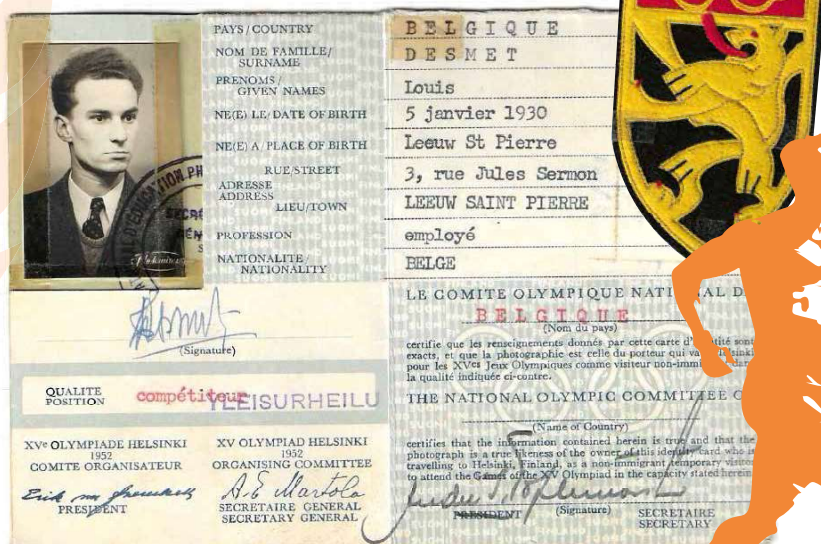 PAYS/COUNTRY BELGIQUE
NOM DE FAMILLE/
SURNAME DESMET
PRENOMS/
GIVEN NAMES Louis
NE(E) LE/DATE OF BIRTH 5 janvier 1930
NE(E) A/PLACE OF BIRTH Leeuw St Pierre
RUE/STREET 3, rue Jules Sermon
ADRESSE
ADDRESS
LIEU/TOWN LEEUW SAINT PIERRE
PROFESSION employé
NATIONALITE/
NATIONALITY BELGE
(Signature)
QUALITE
POSITION compétiteur YLEISURHEILU
XVe OLYMPIADE HELSINKI
1952
COMITE ORGANISATEUR
PRESIDENT
XV OLYMPIAD HELSINKI
1952
ORGANISING COMMITTEE
A. E. Martola
SECRETAIRE GENERAL
SECRETARY GENERAL
LE COMITE OLYMPIQUE NATI AL D
BELGIQUE
(Nom du pays)
certifie que les renseignements donnés par cette carte d' tité sont
exacts, et que la photographie est celle du porteur qui va elsinki
pour les XVes Jeux Olympiques comme visiteur non-immi dan
la qualité indiquée ci-contre.
THE NATIONAL OLYMPIC COMMITTEE O
(Name of Country)
certifies that the information contained herein is true and that the
photograph is a true likeness of the owner of this identity card who is
travelling to Helsinki, Finland, as a non-immigrant temporary visitor
to attend the Games of the XV Olympiad in the capacity stated herein
PRESIDENT (Signature) SECRETAIRE
SECRETARY